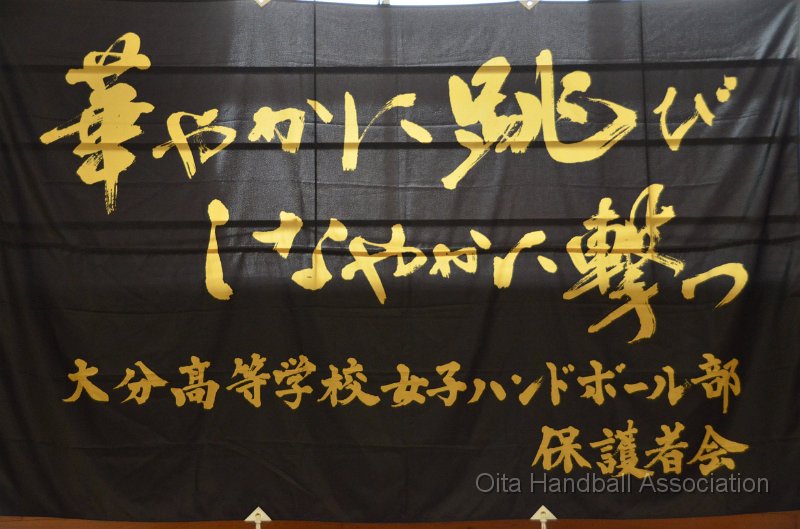 華やかに跳び
しなやかに撃つ
大分高等学校女子ハンドボール部
保護者会
Oita Handball Association